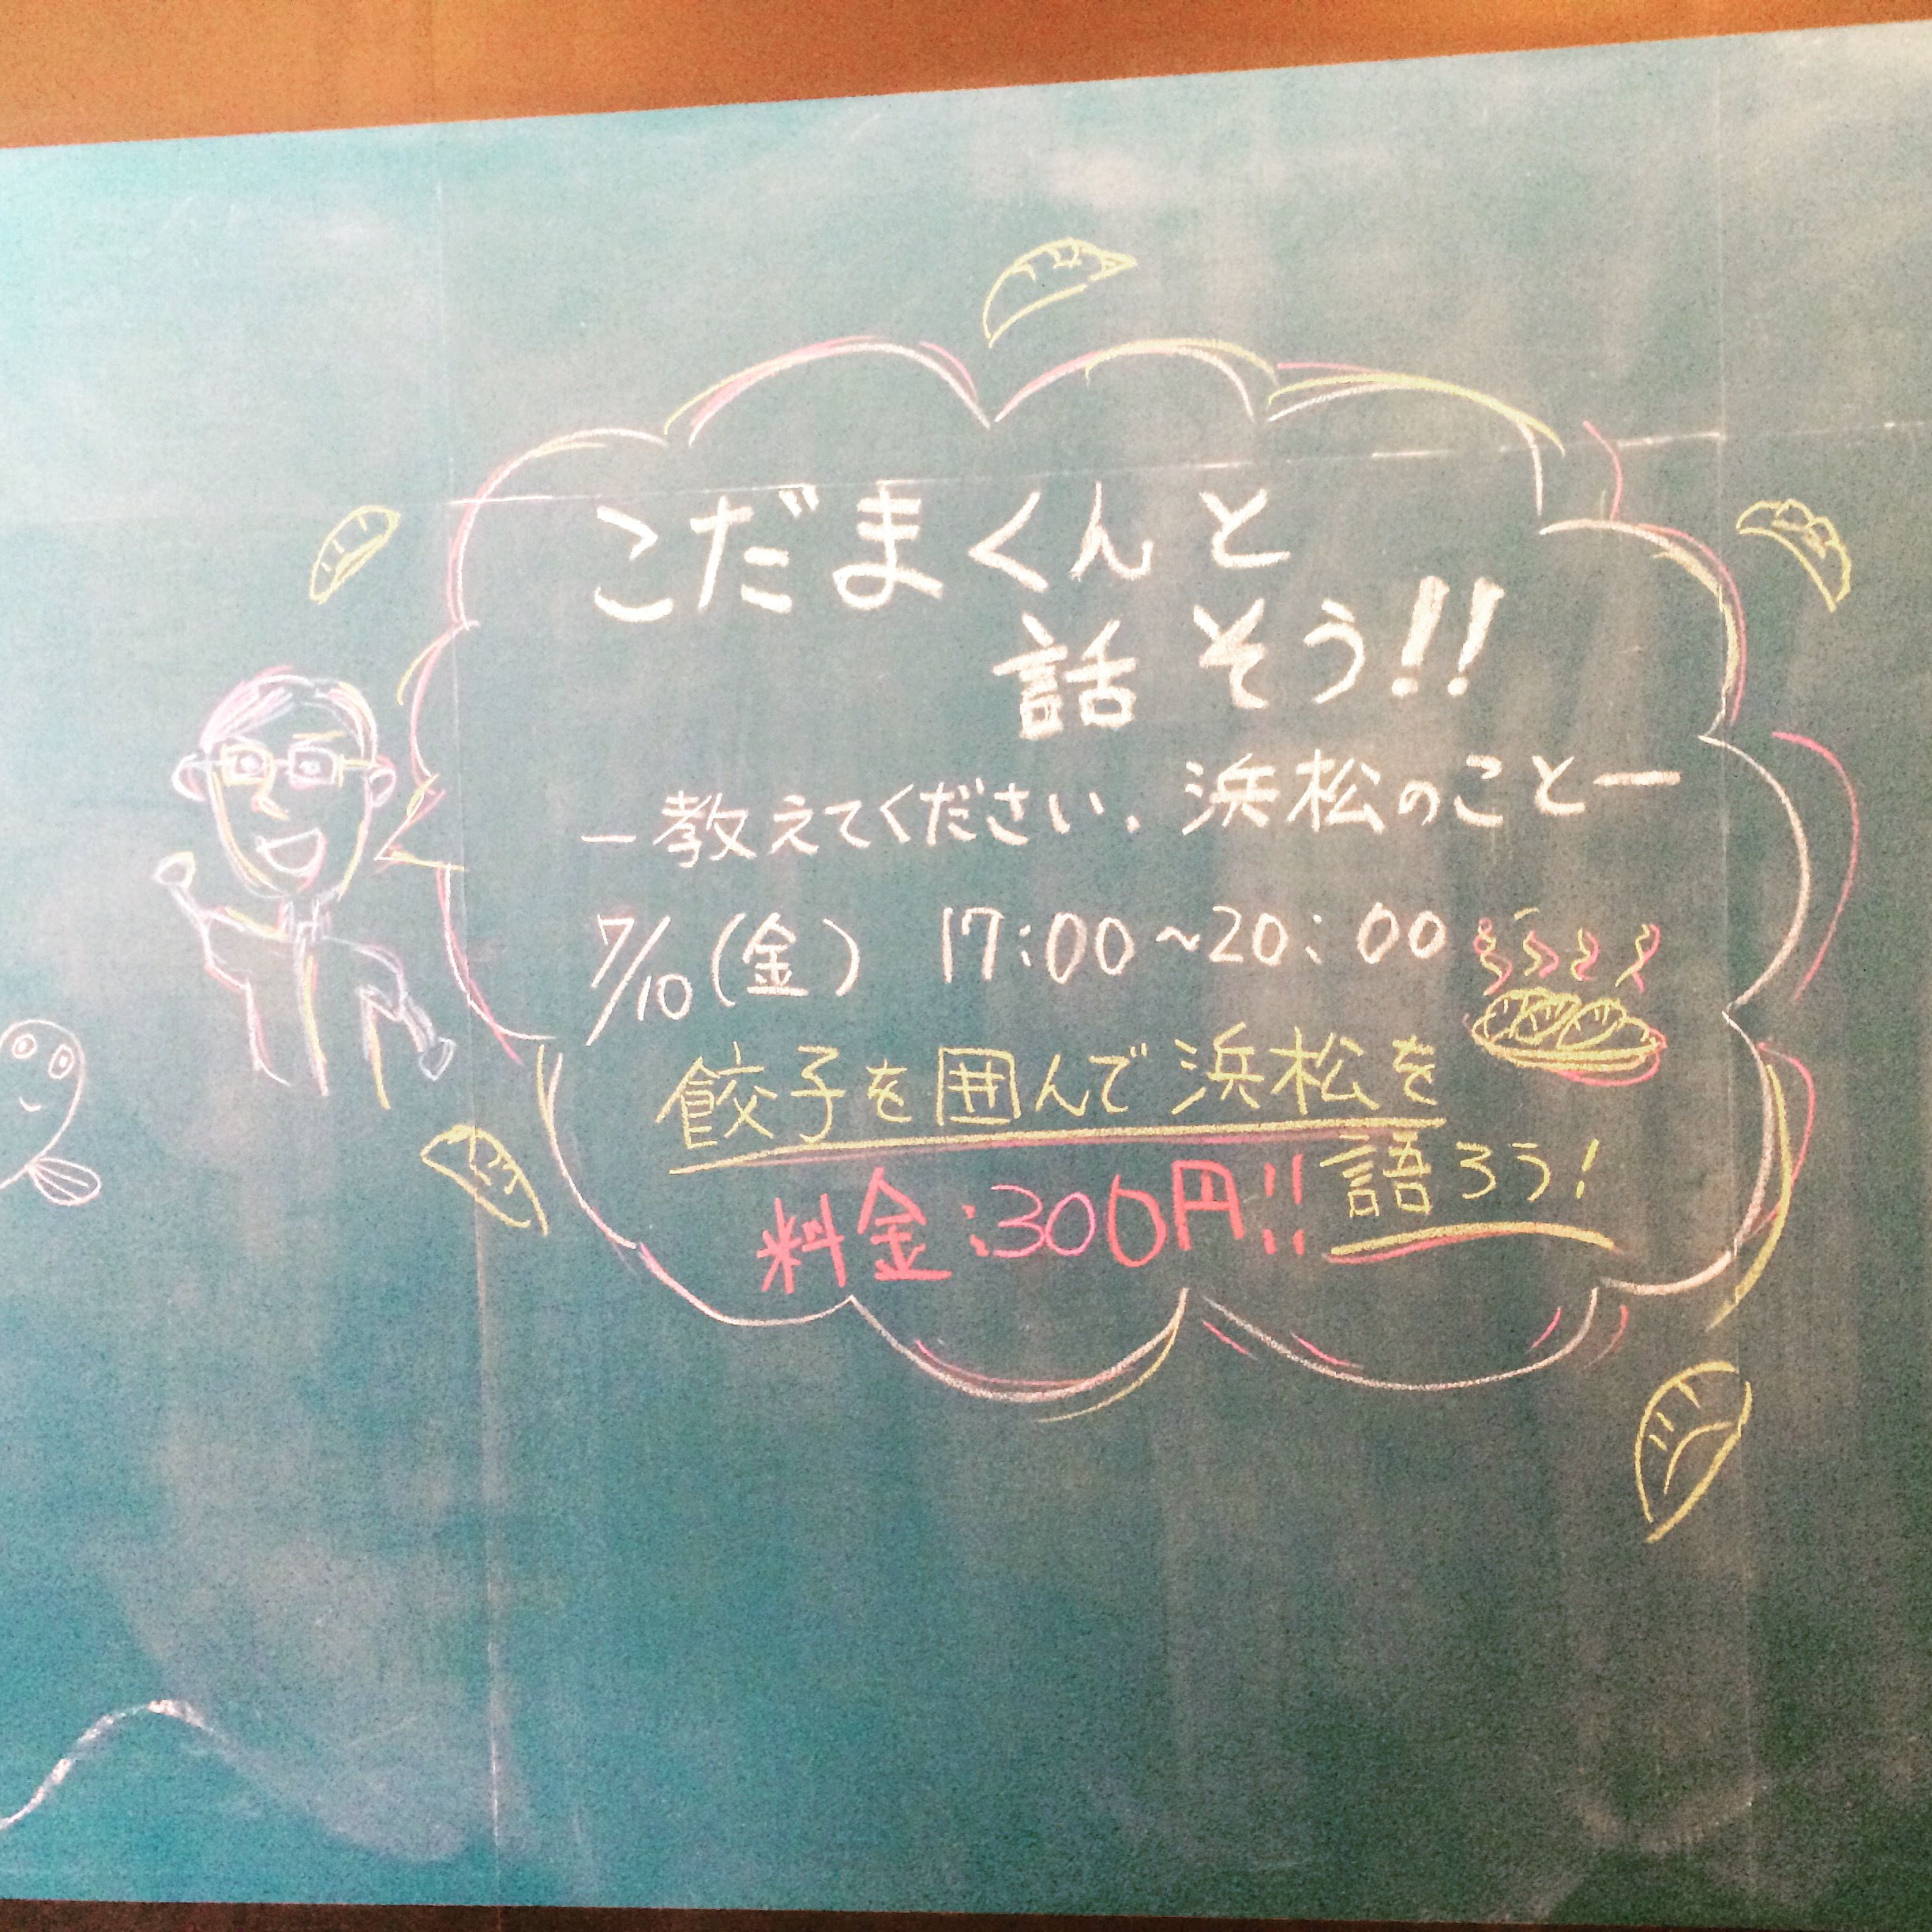 こだまくんと
話そう!!
ー教えてください、浜松のことー
7/10(金) 17:00~20:00
餃子を囲んで浜松を
語ろう!
料金:300円!!